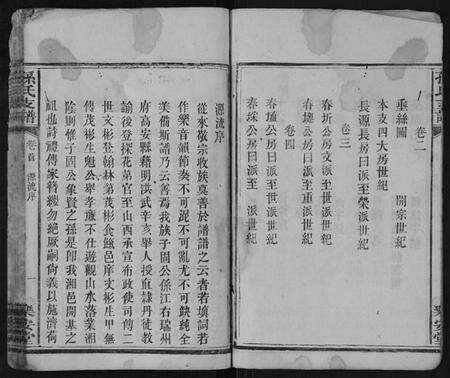 卷二
垂絲圖 開宗世紀
本支四大房世紀
長源長房曰文至榮派世紀
卷三
春圻公房曰文至世派世紀
春墀公房曰文至重派世紀
卷四
春埴公房曰派至 派世紀
春埰公房曰派至 派世紀
孫氏支譜
卷首 源流序
樂安堂
源流序
從來敬宗收族莫善於譜譜之云者若填詞若
作樂音韻節奏不可混不可亂尤不可缺純全
美備斯譜乃云善焉我族子固公係江右瑞州
府高安縣籍明洪武辛亥舉人授直隸丹徒教
諭後登探花第官至山西承宣布政使司傳二
世文彬登翰林第茂彬食餼邑庠文彬生甲無
傳茂彬生魁公舉孝廉不仕遊觀山水落業湘
陰則惟子固公象賢之孫是卽我湘邑開基之
祖也詩禮傳家將纔勿絕厥嗣尙義以施濟荷